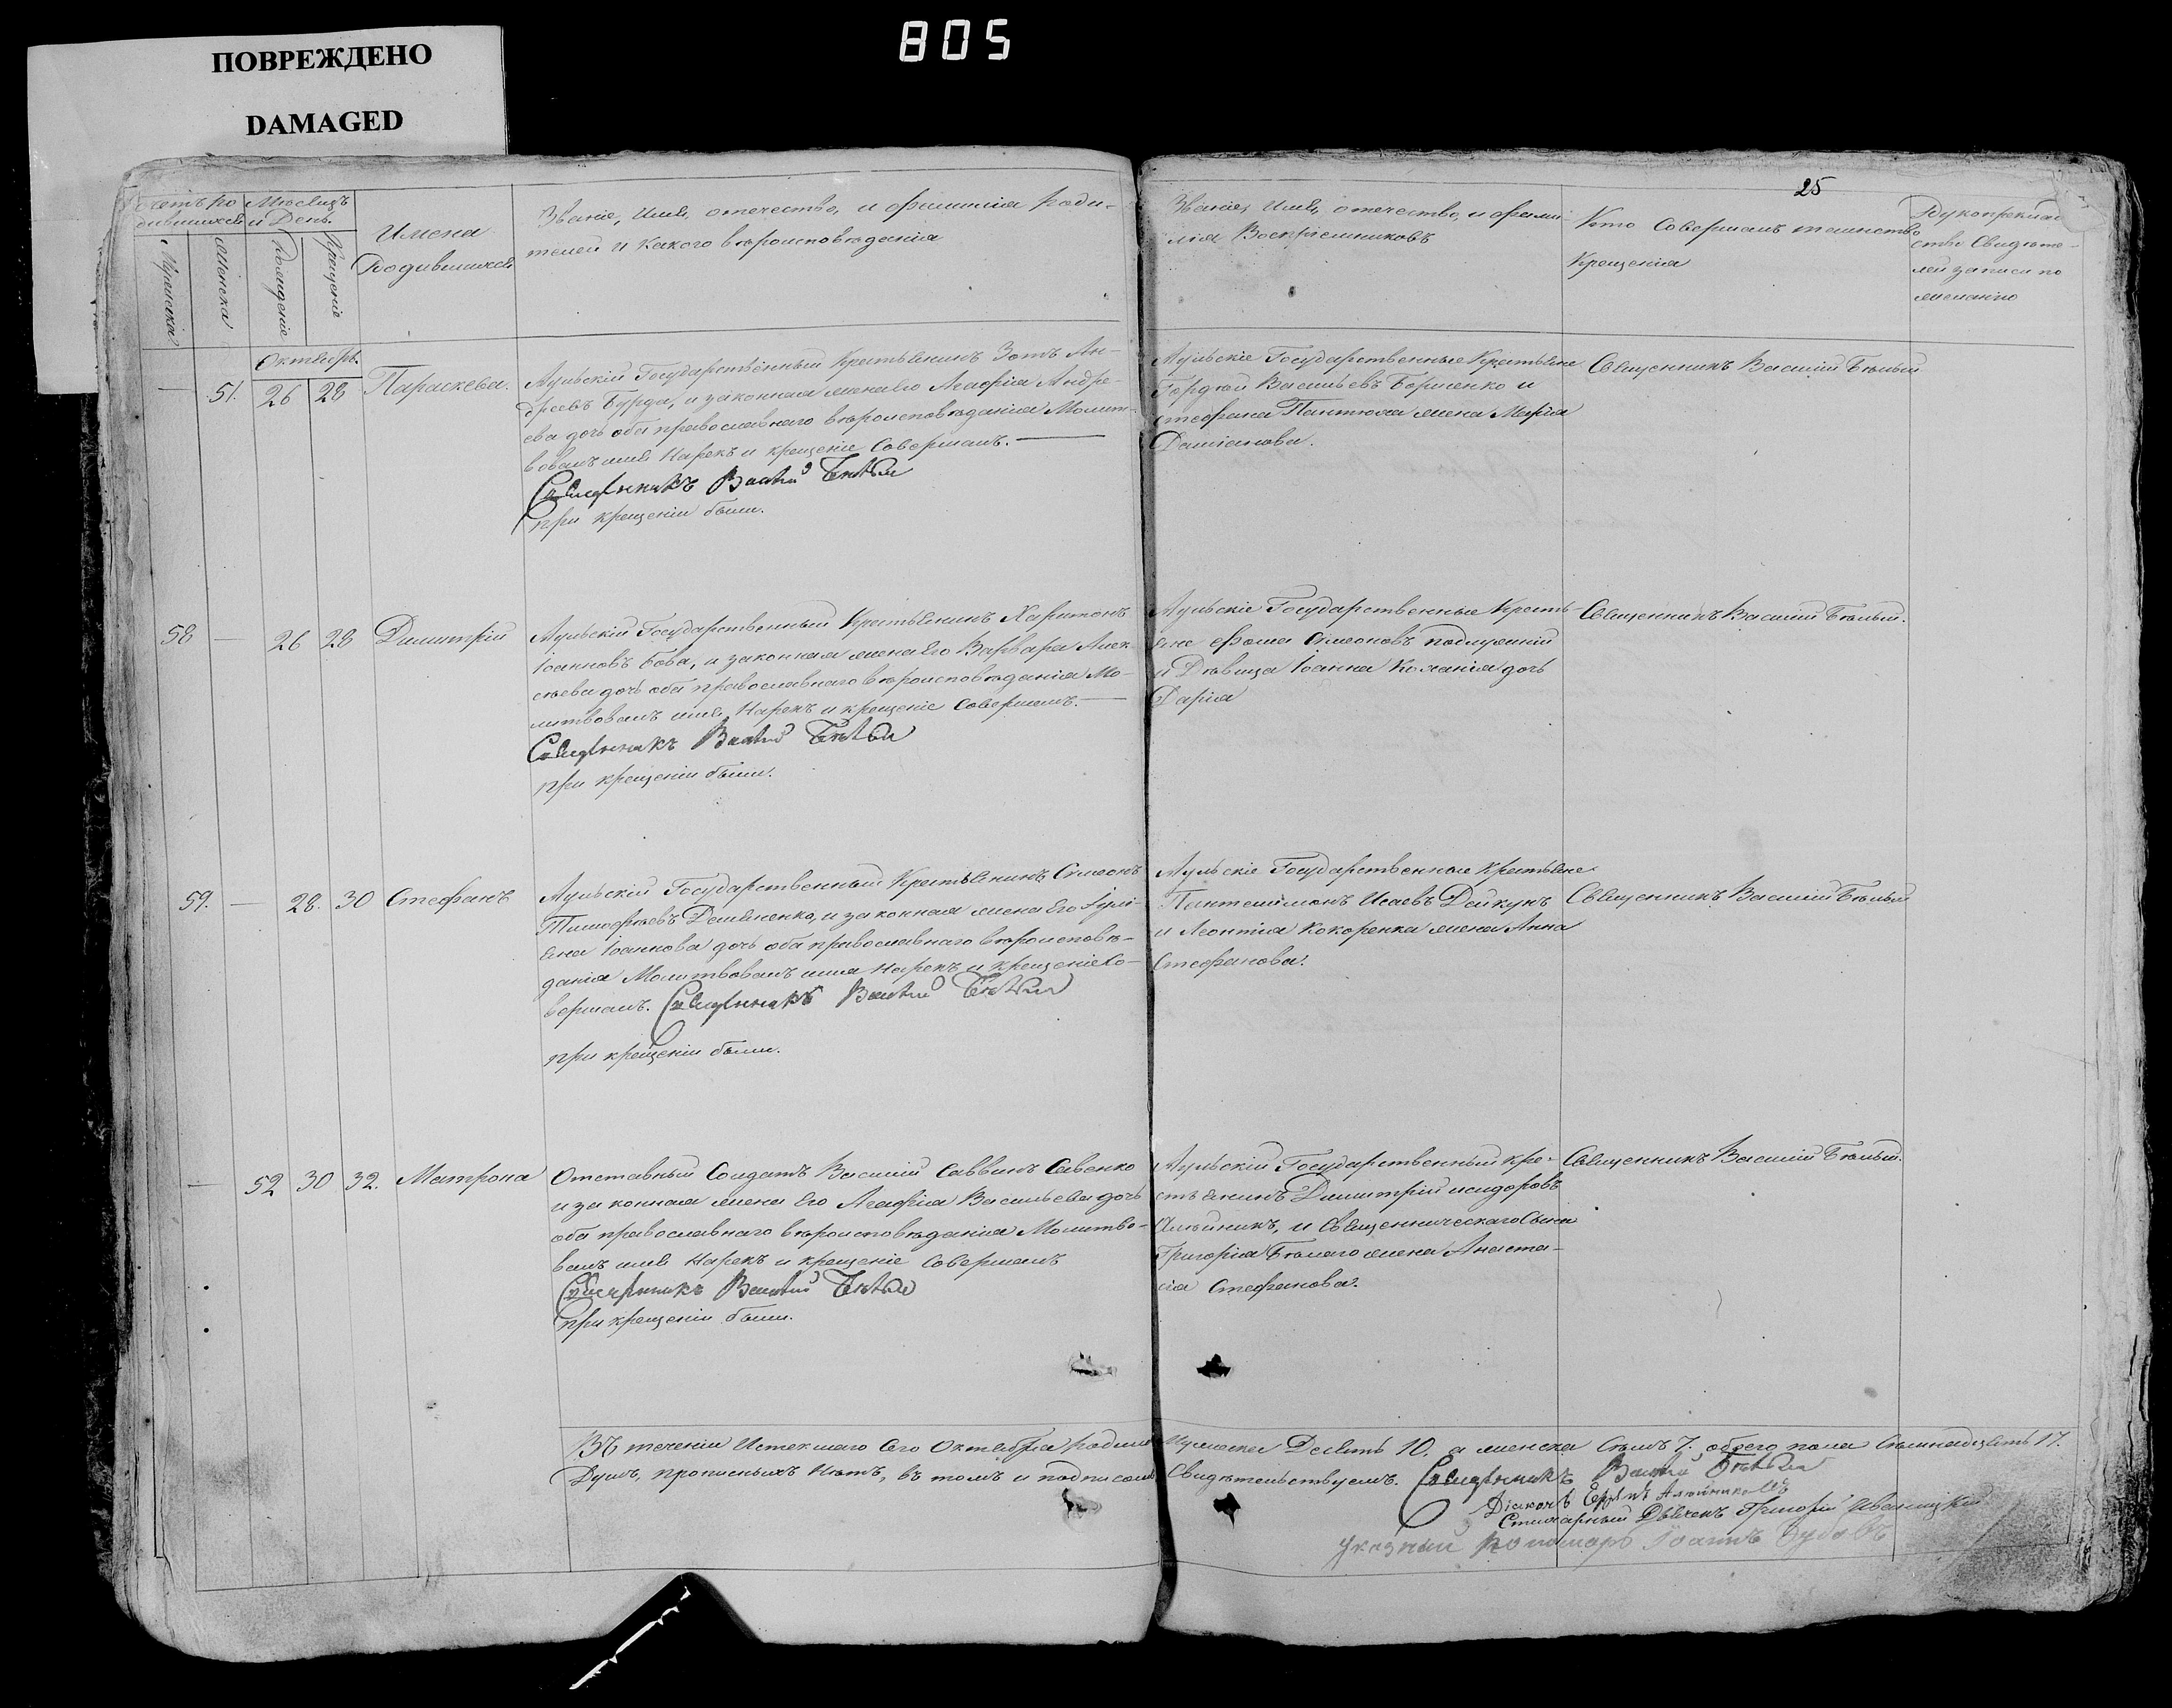 ПОВРЕЖДЕНО
DAMAGED
805
25
Счетъ ро Мѣсяцъ
дившихся и День.
Мужеска
Женска
Рожденіе
Крещеніе
Имена
Родившихся
Званіе, Имя, отечество, и фамилія роди-
телей и какого вѣроисповѣданія
Званіе, Имя, отечество, и фами-
лія Воспріемниковъ
Кто Совершалъ таинство
Крещенія
Рукоприклад
ство Свидѣте-
лей записи по
желанію
Октябрь.
— 51. 26 28 Параскева.
Аульскій Государственный Крестьянинъ Зотъ Ан-
дреевъ Бурда, и законная жена его Агафія Андре-
ева дочь оба православнаго вѣроисповѣданія Молит-
вовалъ имя Нарекъ и крещеніе Совершалъ. —
Священникъ Василій Бѣлый
при крещеніи были.
Аульскіе Государственные Крестьяне
Гордѣй Васильевъ Борисенко и
Стефана Пантюха жена Марія
Даміанова.
Священникъ Василій Бѣлый
58 — 26 28 Димитрій
Аульскій Государственный Крестьянинъ Харитонъ
Іоанновъ Бова, и законная жена Его Варвара Алек-
сѣева дочь оба православнаго вѣроисповѣданія Мо-
литвовалъ имя Нарекъ и крещеніе Совершалъ. —
Священникъ Василій Бѣлый
при крещеніи были.
Аульскіе Государственные Кресть-
яне Фома Симеоновъ
и Дѣвица Іоанна дочь
Дарія
Священникъ Василій Бѣлый.
59. — 28. 30 Стефанъ
Аульскій Государственный Крестьянинъ Симеонъ
Тимофѣевъ Демяненко, и законная жена Его Іулі-
яна Іоаннова дочь оба православнаго вѣроисповѣ-
данія Молитвовалъ имя нарекъ и крещеніе Со-
вершалъ. Священникъ Василій Бѣлый
при крещеніи были.
Аульскіе Государственные Крестьяне
Пантелимонъ Исаевъ Дейкунъ
и Леонтія Кокоренка жена Анна
Стефанова.
Священникъ Василій Бѣлый
— 52 30 32. Матрона
Отставный Солдатъ Василій Саввинъ Савенко
и законная жена Его Агафія Васильева дочь
оба православнаго вѣроисповѣданія Молитво-
валъ имя Нарекъ и крещеніе Совершалъ
Священникъ Василій Бѣлый
при крещеніи были.
Аульскій Государственный Кре-
стьянинъ Димитрій Исидоровъ
Алѣйникъ, и Священническаго Сына
Григорія Бѣлаго жена Анаста-
сія Стефанова.
Священникъ Василій Бѣлый.
Въ теченіи Истекшаго Сего Октября родилось Мужеска Десять 10, а женска Семъ 7. обоего пола Семнадцать 17.
Душъ, прописныхъ Нѣтъ, въ томъ и подписомъ Свидѣтельствуемъ. Священникъ Василій Бѣлый
Діаконъ Алѣйниковъ
Стихарный Дьячекъ Григорій Иваницкій
Указный Пономарь Іоаннъ